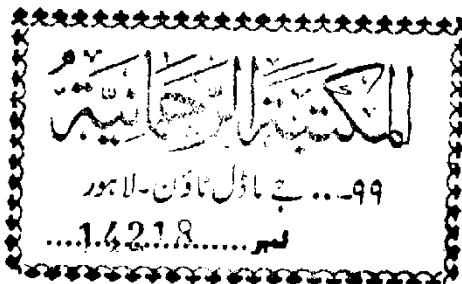 المكتبة الرحمانية
۹۹... جے ماڈل ٹاؤن۔ لاہور
نمبر....14218....